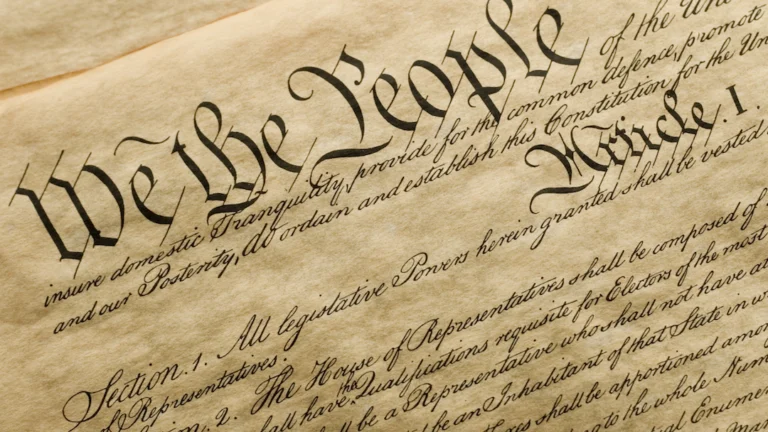 We the People of the Uni
insure domestic Tranquility, provide for the common defence, promote
and our Posterity, do ordain and establish this Constitution for the Un
Article. I.
Section. 1. All legislative Powers herein granted shall be vested
of Representatives.
on. 2. The House of Representatives shall be composed of
all have the Qualifications requisite for Electors of the most
ll be a Representative who shall not have at
be an Inhabitant of that State in w
es shall be apportioned amon
to the whole Num
Enumer